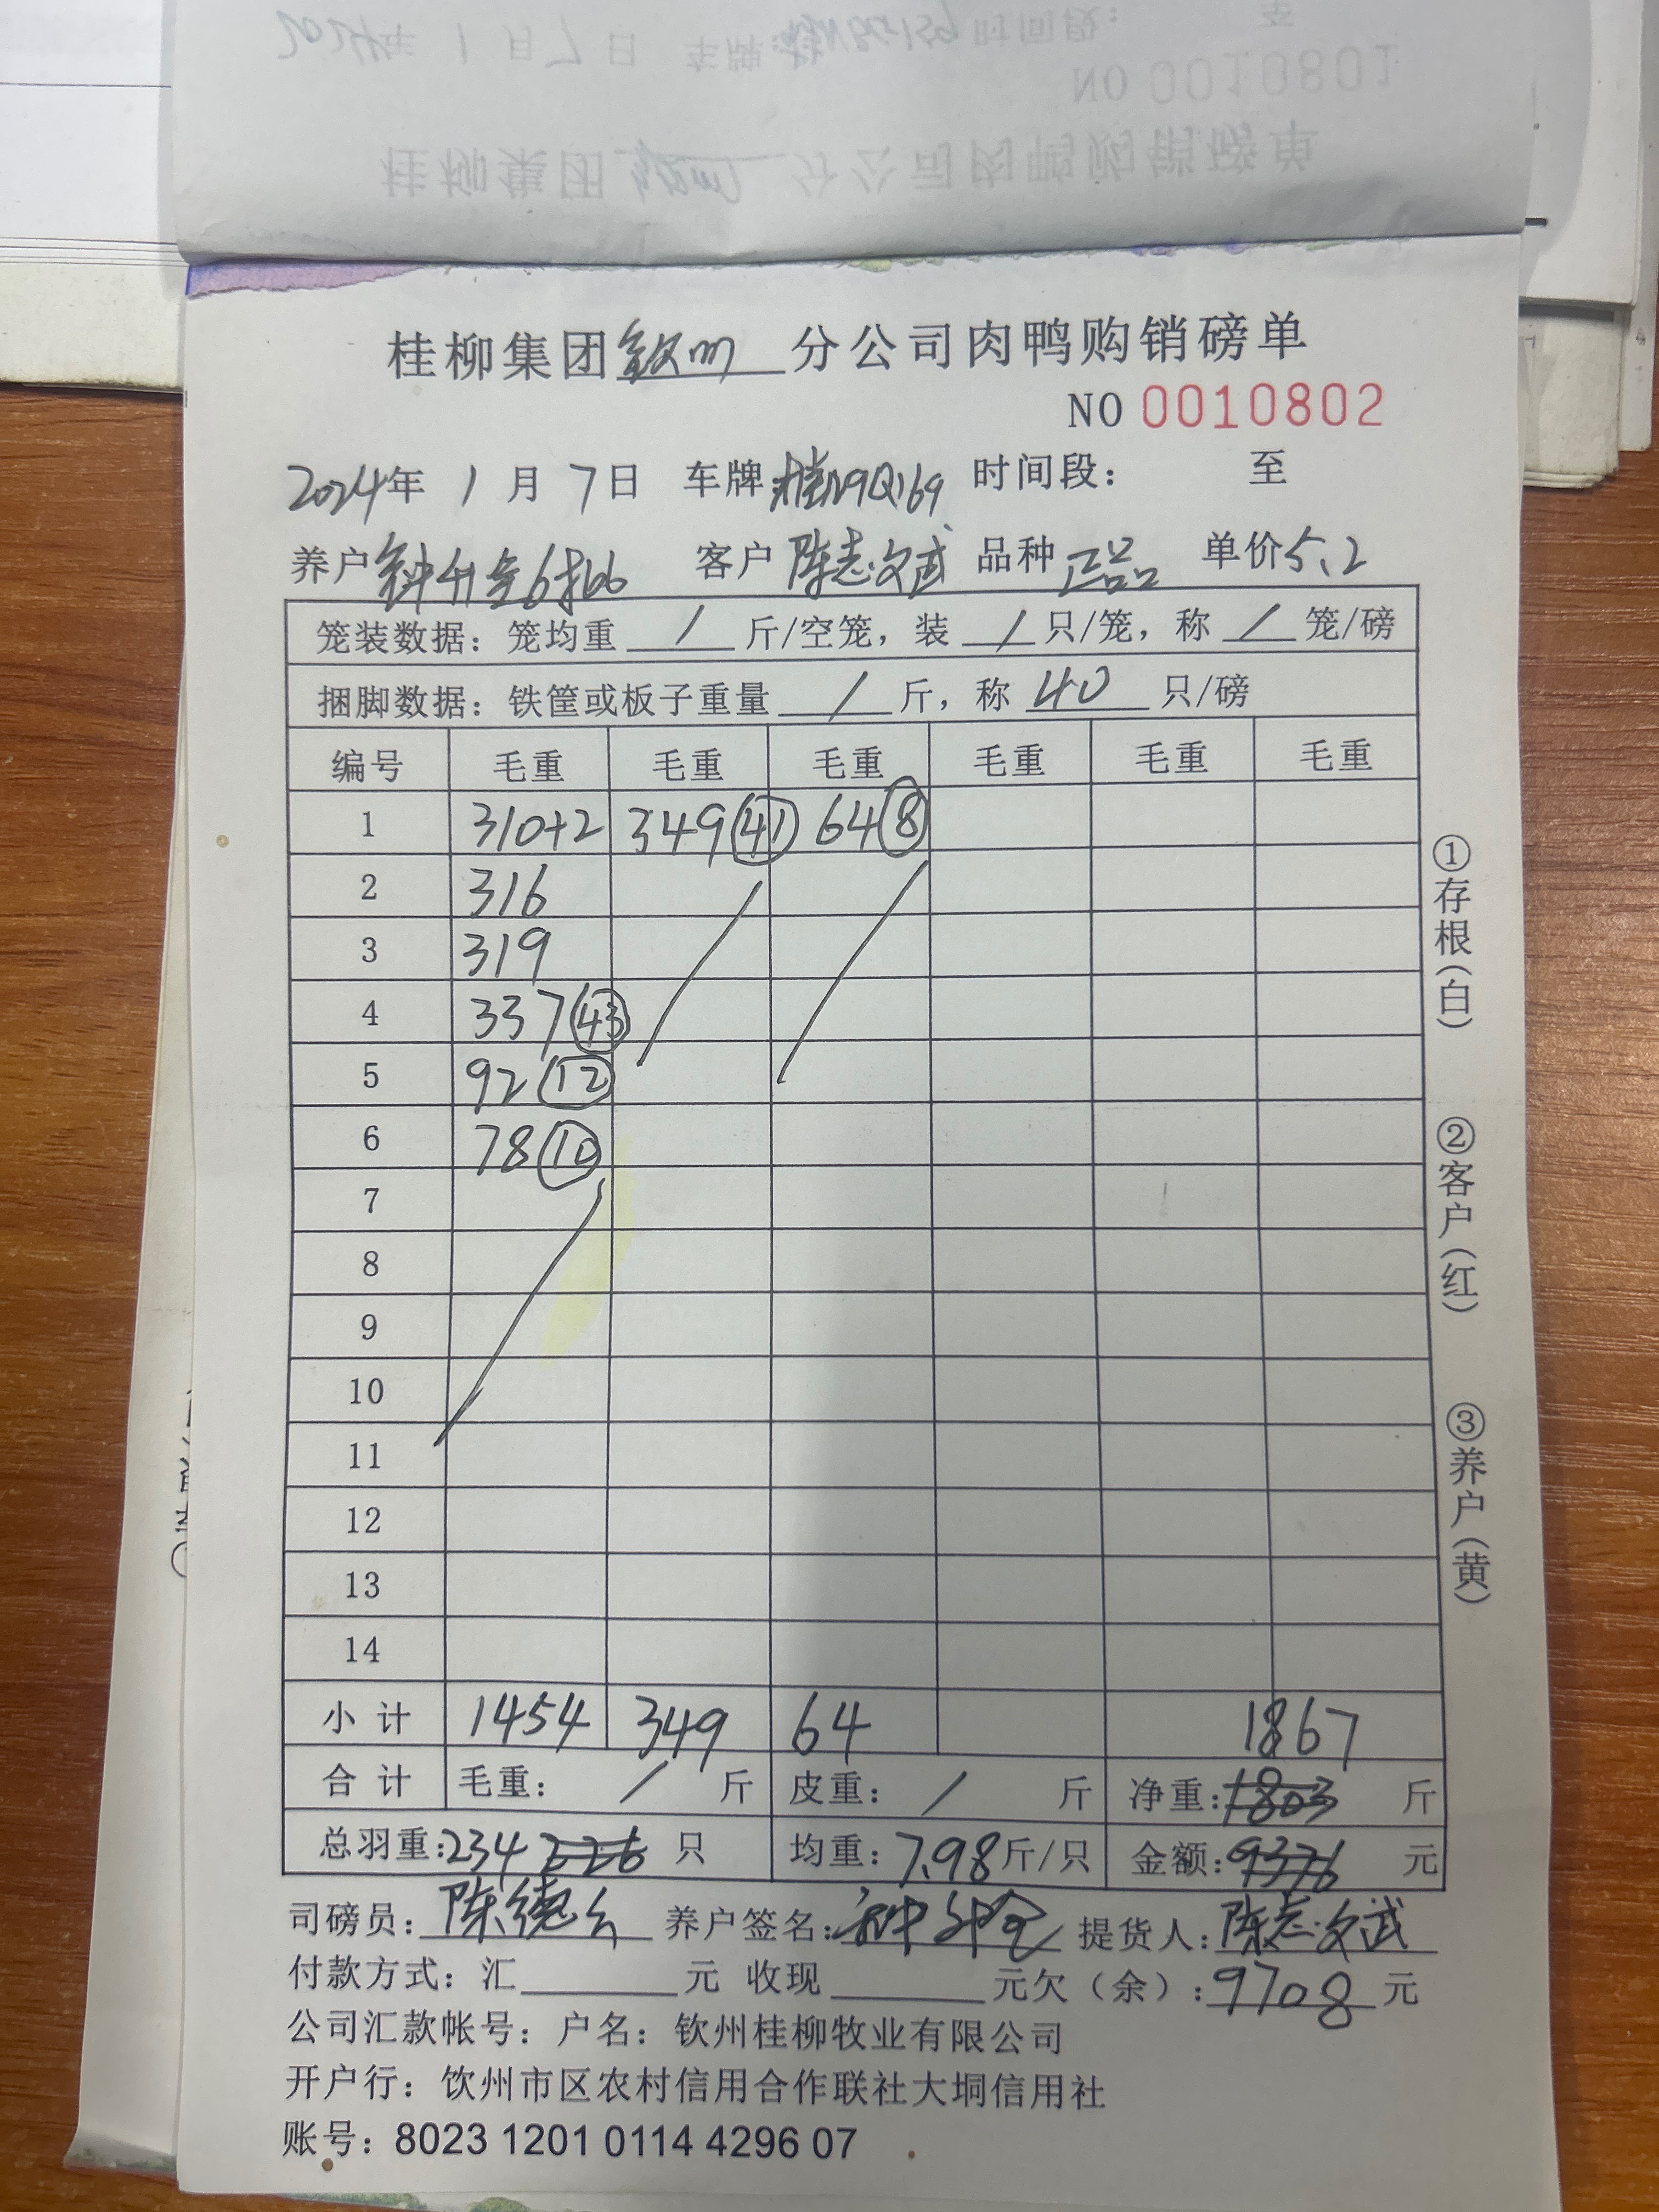 2024年 1 月 7 日 车牌: 时间段: 至
NO 0010801
桂柳集团 钦州 分公司肉鸭购销磅单
桂柳集团 钦州 分公司肉鸭购销磅单
NO 0010802
2024年 1 月 7 日 车牌 桂N9Q169 时间段: 至
养户 钟升全6批66 客户 陈志文武 品种 正品 单价 5.2
笼装数据: 笼均重 / 斤/空笼, 装 / 只/笼, 称 / 笼/磅
捆脚数据: 铁筐或板子重量 / 斤, 称 40 只/磅
编号 毛重 毛重 毛重 毛重 毛重 毛重
1 310+2 349(41) 64(8)
2 316
3 319
4 337(43)
5 92(12)
6 78(10)
7
8
9
10
11
12
13
14
小计 1454 349 64 1867
合计 毛重: / 斤 皮重: / 斤 净重: 1803 斤
总羽重: 234 226 只 均重: 7.98 斤/只 金额: 9376 元
司磅员: 陈德 养户签名: 钟升全 提货人: 陈志文武
付款方式: 汇 元 收现 元欠(余): 9708 元
公司汇款帐号: 户名: 钦州桂柳牧业有限公司
开户行: 钦州市区农村信用合作联社大垌信用社
账号: 8023 1201 0114 4296 07
①存根(白)
②客户(红)
③养户(黄)